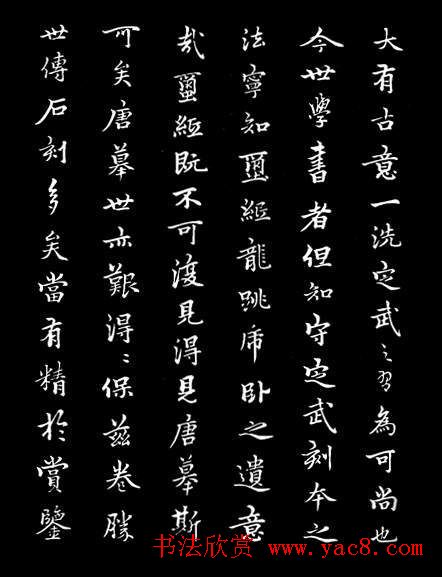 大有古意一洗定武之習為可尚也
今世學書者但知守定武刻本之
法寧知蠒紙龍跳虎卧之遺意
哉蠒紙既不可復見得見唐摹斯
可矣唐摹世亦艱得〻保茲卷勝
世傳石刻多矣當有精於賞鑒
书法欣赏 www.yac8.com